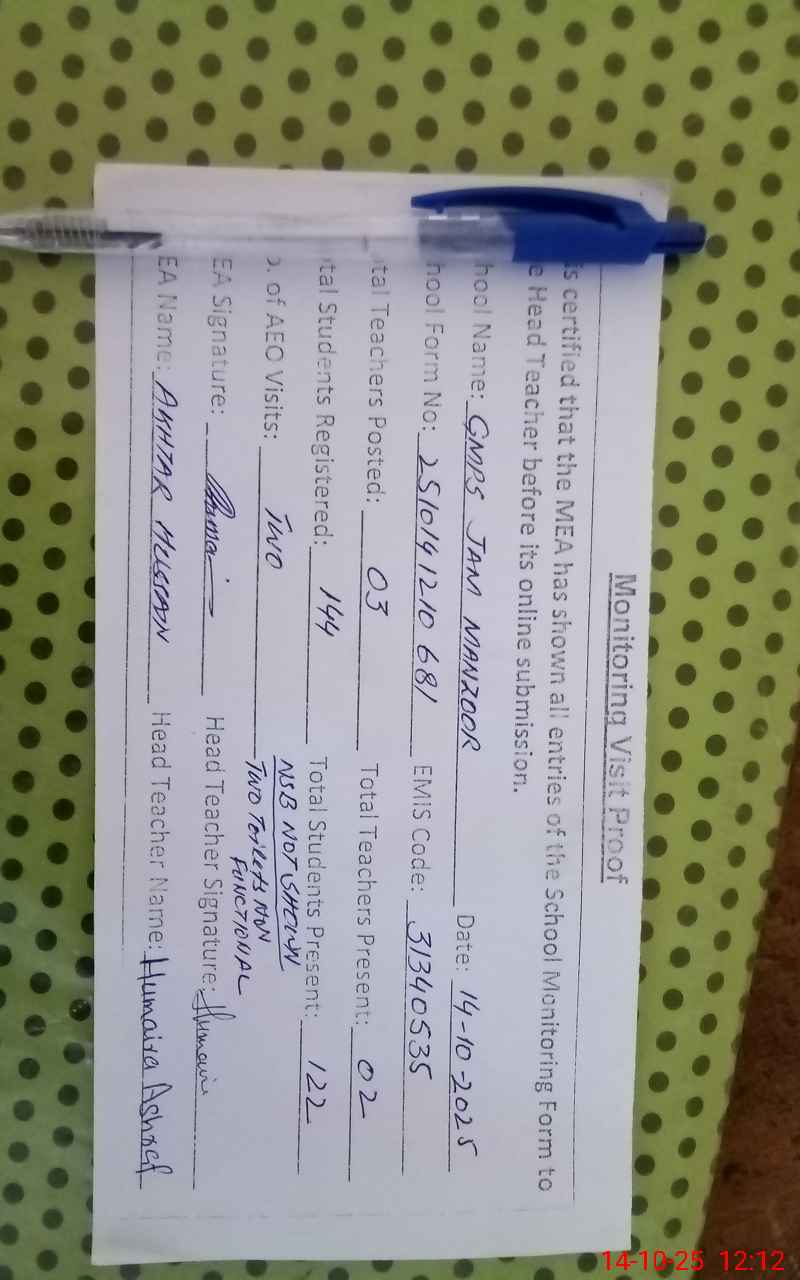 Monitoring Visit Proof
is certified that the MEA has shown all entries of the School Monitoring Form to
e Head Teacher before its online submission.
hool Name: GMPS JAM MANZOOR Date: 14-10-2025
hool Form No: 2510141210681 EMIS Code: 31340535
tal Teachers Posted: 03 Total Teachers Present: 02
tal Students Registered: 144 Total Students Present: 122
. of AEO Visits: TWO NSB NOT SHOWN
TWO Toilets NON
FUNCTIONAL
EA Signature: Head Teacher Signature: Humaira
EA Name: AKHTAR HUSSAIN Head Teacher Name: Humaira Ashraf
14-10-25 12:12